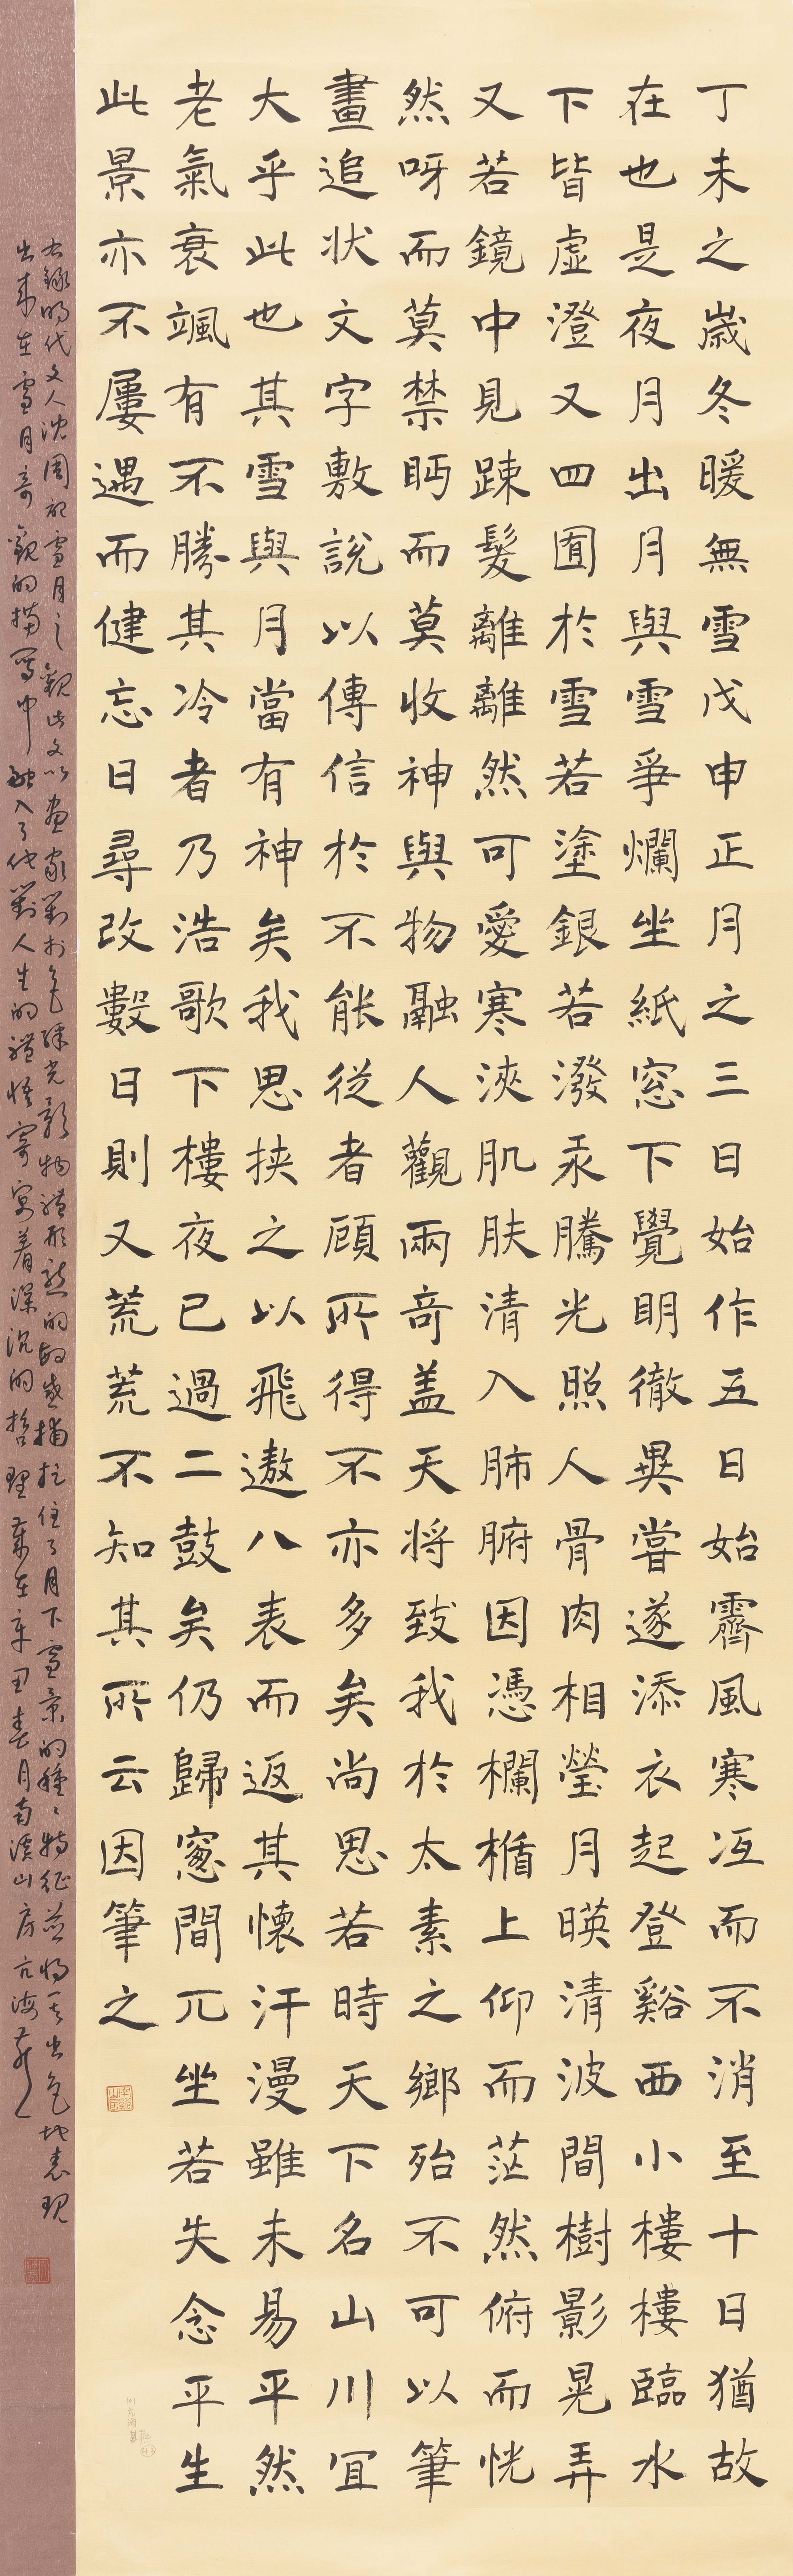 丁未之歲冬暖無雪戊申正月之三日始作五日始霽風寒冱而不消至十日猶故
在也是夜月出月與雪爭爛坐紙窓下覺明徹異嘗遂添衣起登谿西小樓樓臨水
下皆虛澄又四囿於雪若塗銀若潑汞騰光照人骨肉相瑩月暎清波間樹影晃弄
又若鏡中見踈髮離離然可愛寒浹肌肤清入肺腑因憑欄楯上仰而茫然俯而恍
然呀而莫禁眄而莫收神與物融人觀兩奇盖天將致我於太素之鄉殆不可以筆
畫追狀文字敷說以傳信於不能從者顧所得不亦多矣尚思若時天下名山川宜
大乎此也其雪與月當有神矣我思挾之以飛遨八表而返其懷汗漫雖未易平然
老氣衰颯有不勝其冷者乃浩歌下樓夜已過二鼓矣仍歸窻間兀坐若失念平生
此景亦不屢遇而健忘日尋改數日則又荒荒不知其所云因筆之
右錄明代文人沈周記雪月之觀此文以畫家對於色綵光影物體形態的敏感捕捉住了月下雪景的種〻特征並將其出色地表現
出來在雪月奇觀的描寫中融入了他對人生的體悟寄寓着深沉的哲理歲在辛丑春月南溪山房亢海